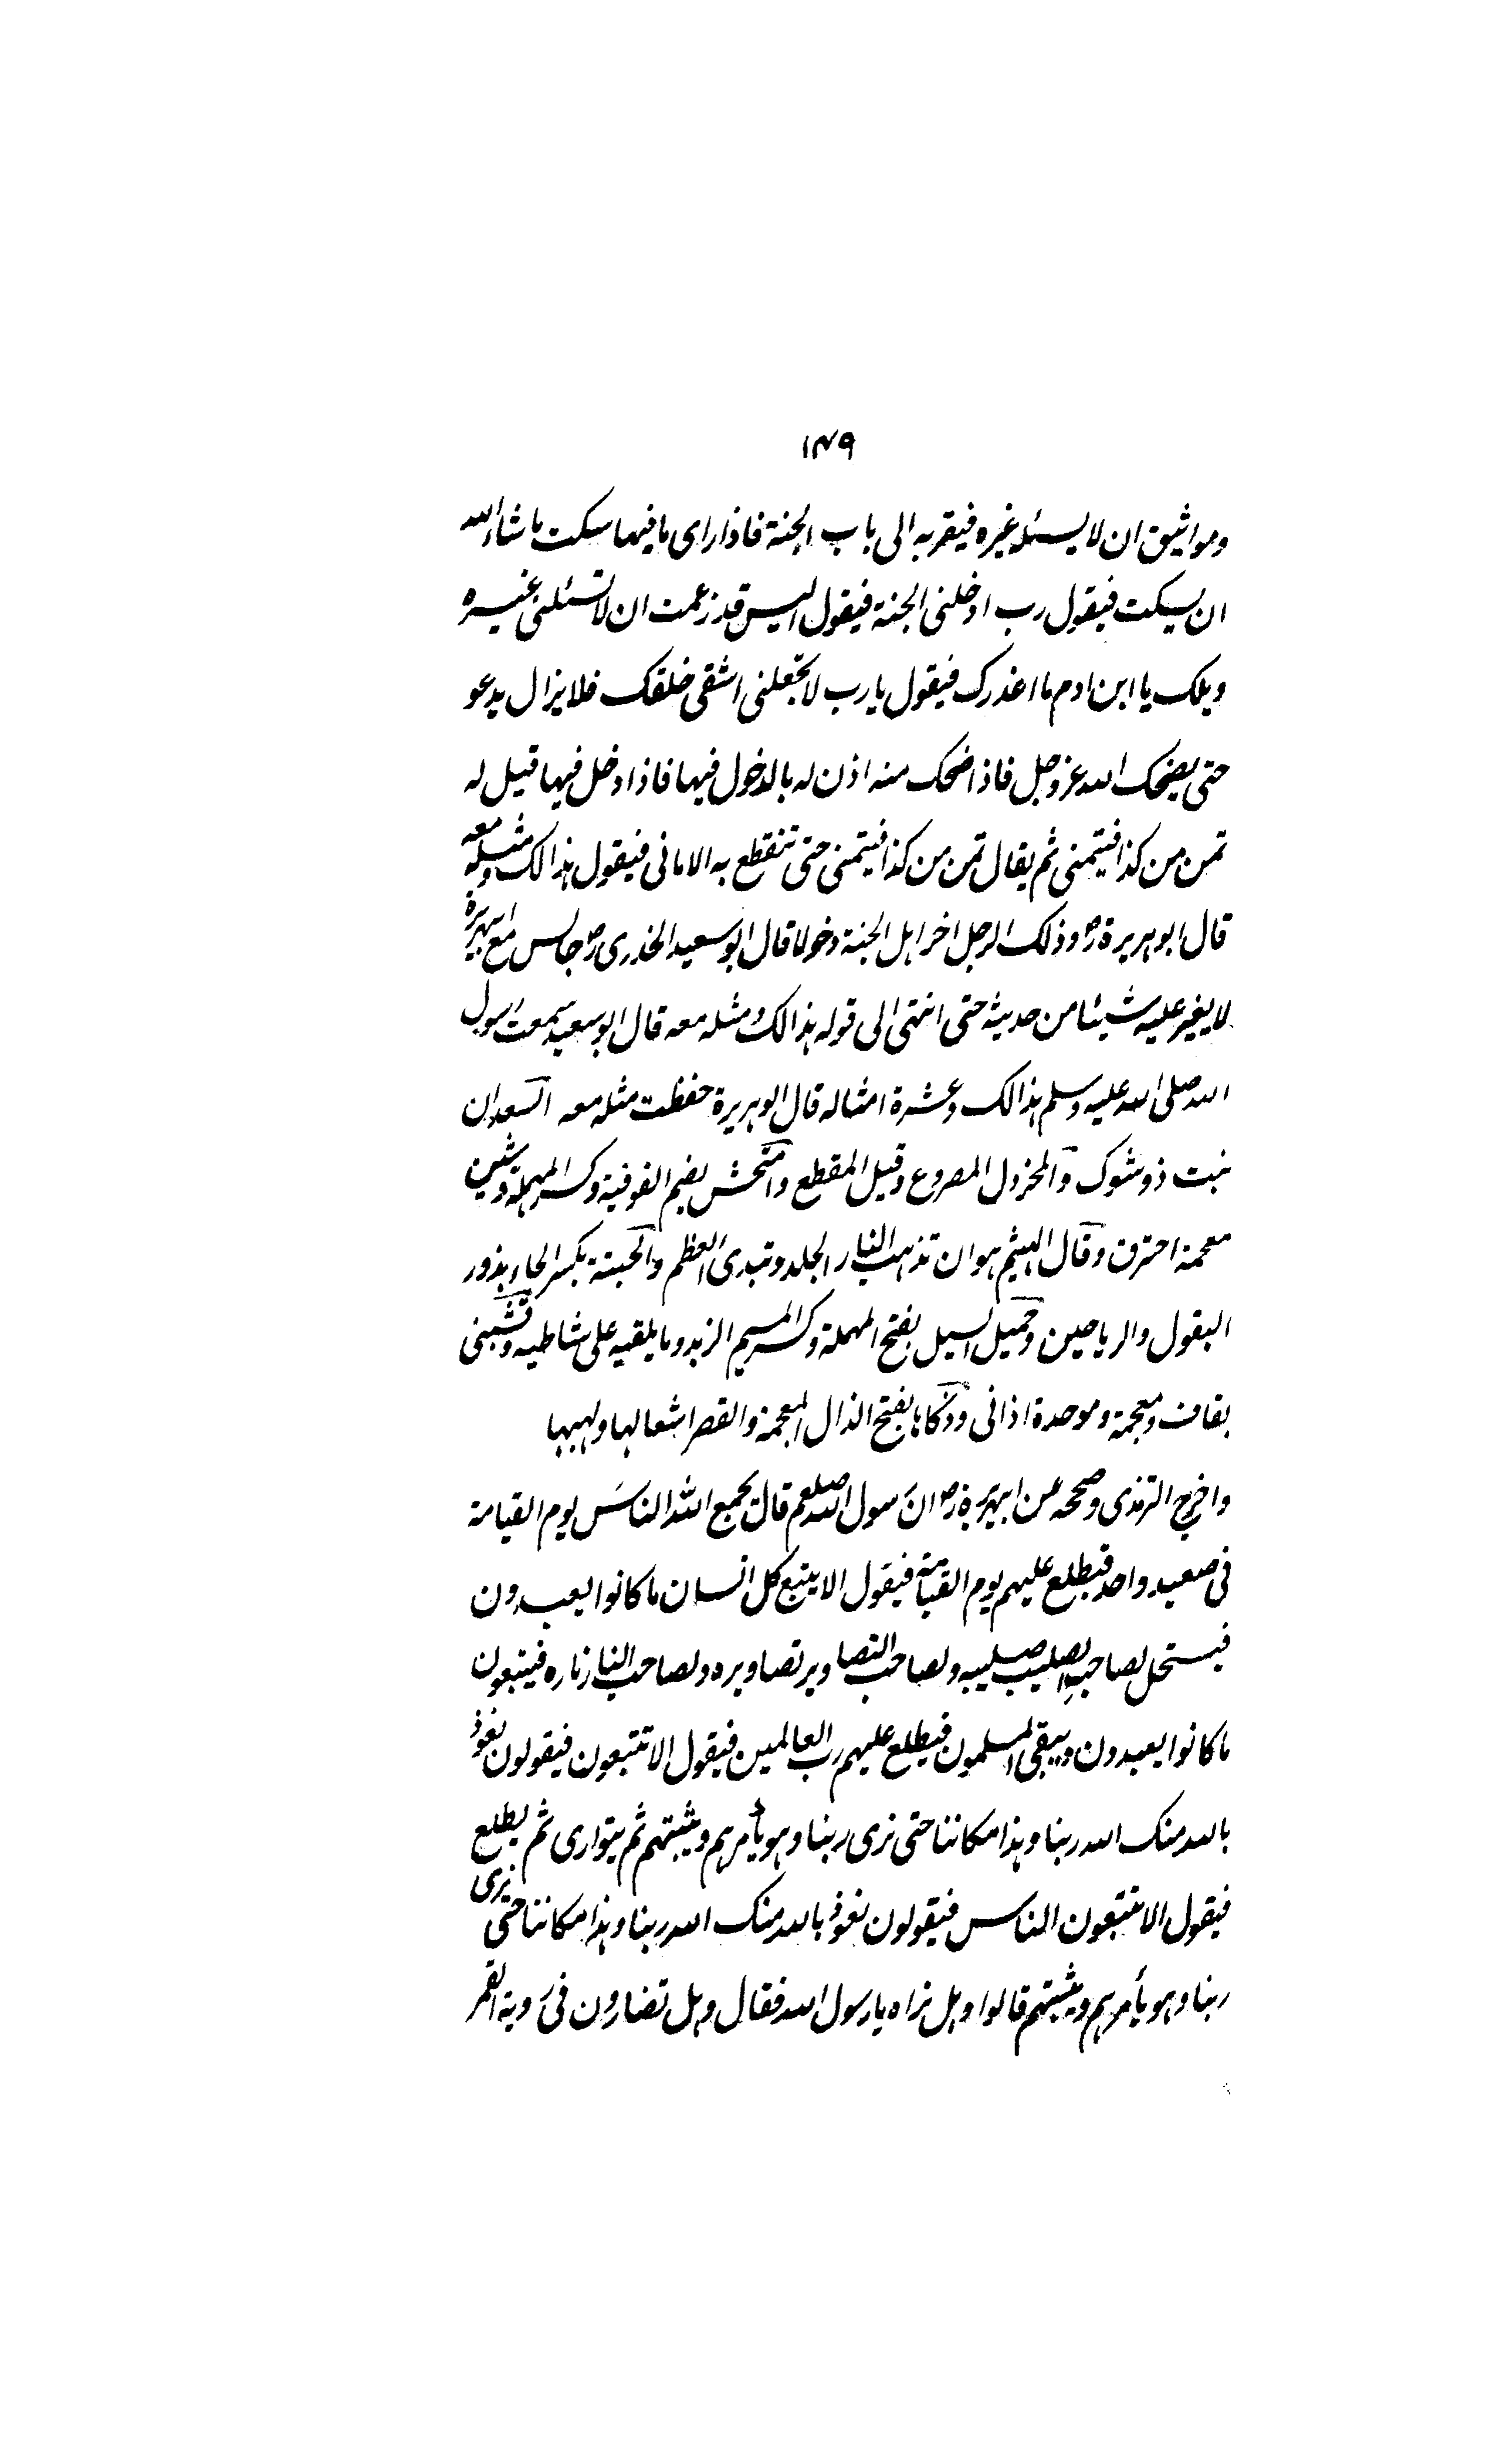 ١٤٩
ومواثيق ان لا يسئله غيره فيقربه الى باب الجنة فاذا راى ما فيها سكت ما شاء الله
ان يسكت فيقول رب ادخلنى الجنة فيقول اليس قد زعمت ان لا تسئلنى غيره
ويلك يا ابن ادم ما اغدرك فيقول يا رب لا تجعلنى اشقى خلقك فلا يزال يدعو
حتى يضحك الله عز وجل فاذا ضحك منه اذن له بالدخول فيها فاذا دخل فيها قيل له
تمن من كذا فيتمنى ثم يقال تمن من كذا فيتمنى حتى تنقطع به الامانى فيقول هذا لك ومثله معه
قال ابو هريرة رض وذلك الرجل اخر اهل الجنة دخولا قال ابو سعيد الخدرى رض جالس مع ابى هريرة
لا يغير عليه شيئا من حديثه حتى انتهى الى قوله هذا لك ومثله معه قال ابو سعيد سمعت رسول
الله صلى الله عليه وسلم هذا لك وعشرة امثاله قال ابو هريرة حفظت مثله معه السعدان
نبت ذو شوك والمخردل المصروع وقيل المقطع وامتحش بضم الفوقية وكسر المهملة وشين
معجمة احترق وقال الهيثم هو ان تذهب النار الجلد وتبدى العظم والحبة بكسر الحاء بذور
البقول والرياحين وحميل السيل بفتح المهملة وكسر الميم الزبد وما يلقيه على شاطيه وقشبنى
بقاف ومعجمة وموحدة اذانى وذكاها بفتح الذال المعجمة والقصر اشعالها ولهيبها
واخرج الترمذى وصححه عن ابى هريرة رض ان رسول الله صلعم قال يجمع الله الناس يوم القيامة
فى صعيد واحد فيطلع عليهم يوم القيامة فيقول الا يتبع كل انسان ما كانوا يعبدون
فيستحل لصاحب الصليب صليبه ولصاحب التصاوير تصاويره ولصاحب النار ناره فيتبعون
ما كانوا يعبدون ويبقى المسلمون فيطلع عليهم رب العالمين فيقول الا تتبعون فيقولون نعوذ
بالله منك الله ربنا وهذا مكاننا حتى نرى ربنا وهو يأمرهم ويثبتهم ثم يتوارى ثم يطلع
فيقول الا تتبعون الناس فيقولون نعوذ بالله منك الله ربنا وهذا مكاننا حتى نرى
ربنا وهو يأمرهم ويثبتهم قالوا وهل نراه يا رسول الله فقال وهل تضارون فى روية القمر